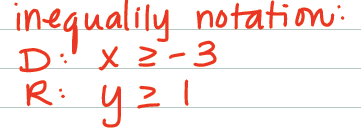 inequalily notation:
D: x ≥ -3
R: y ≥ 1